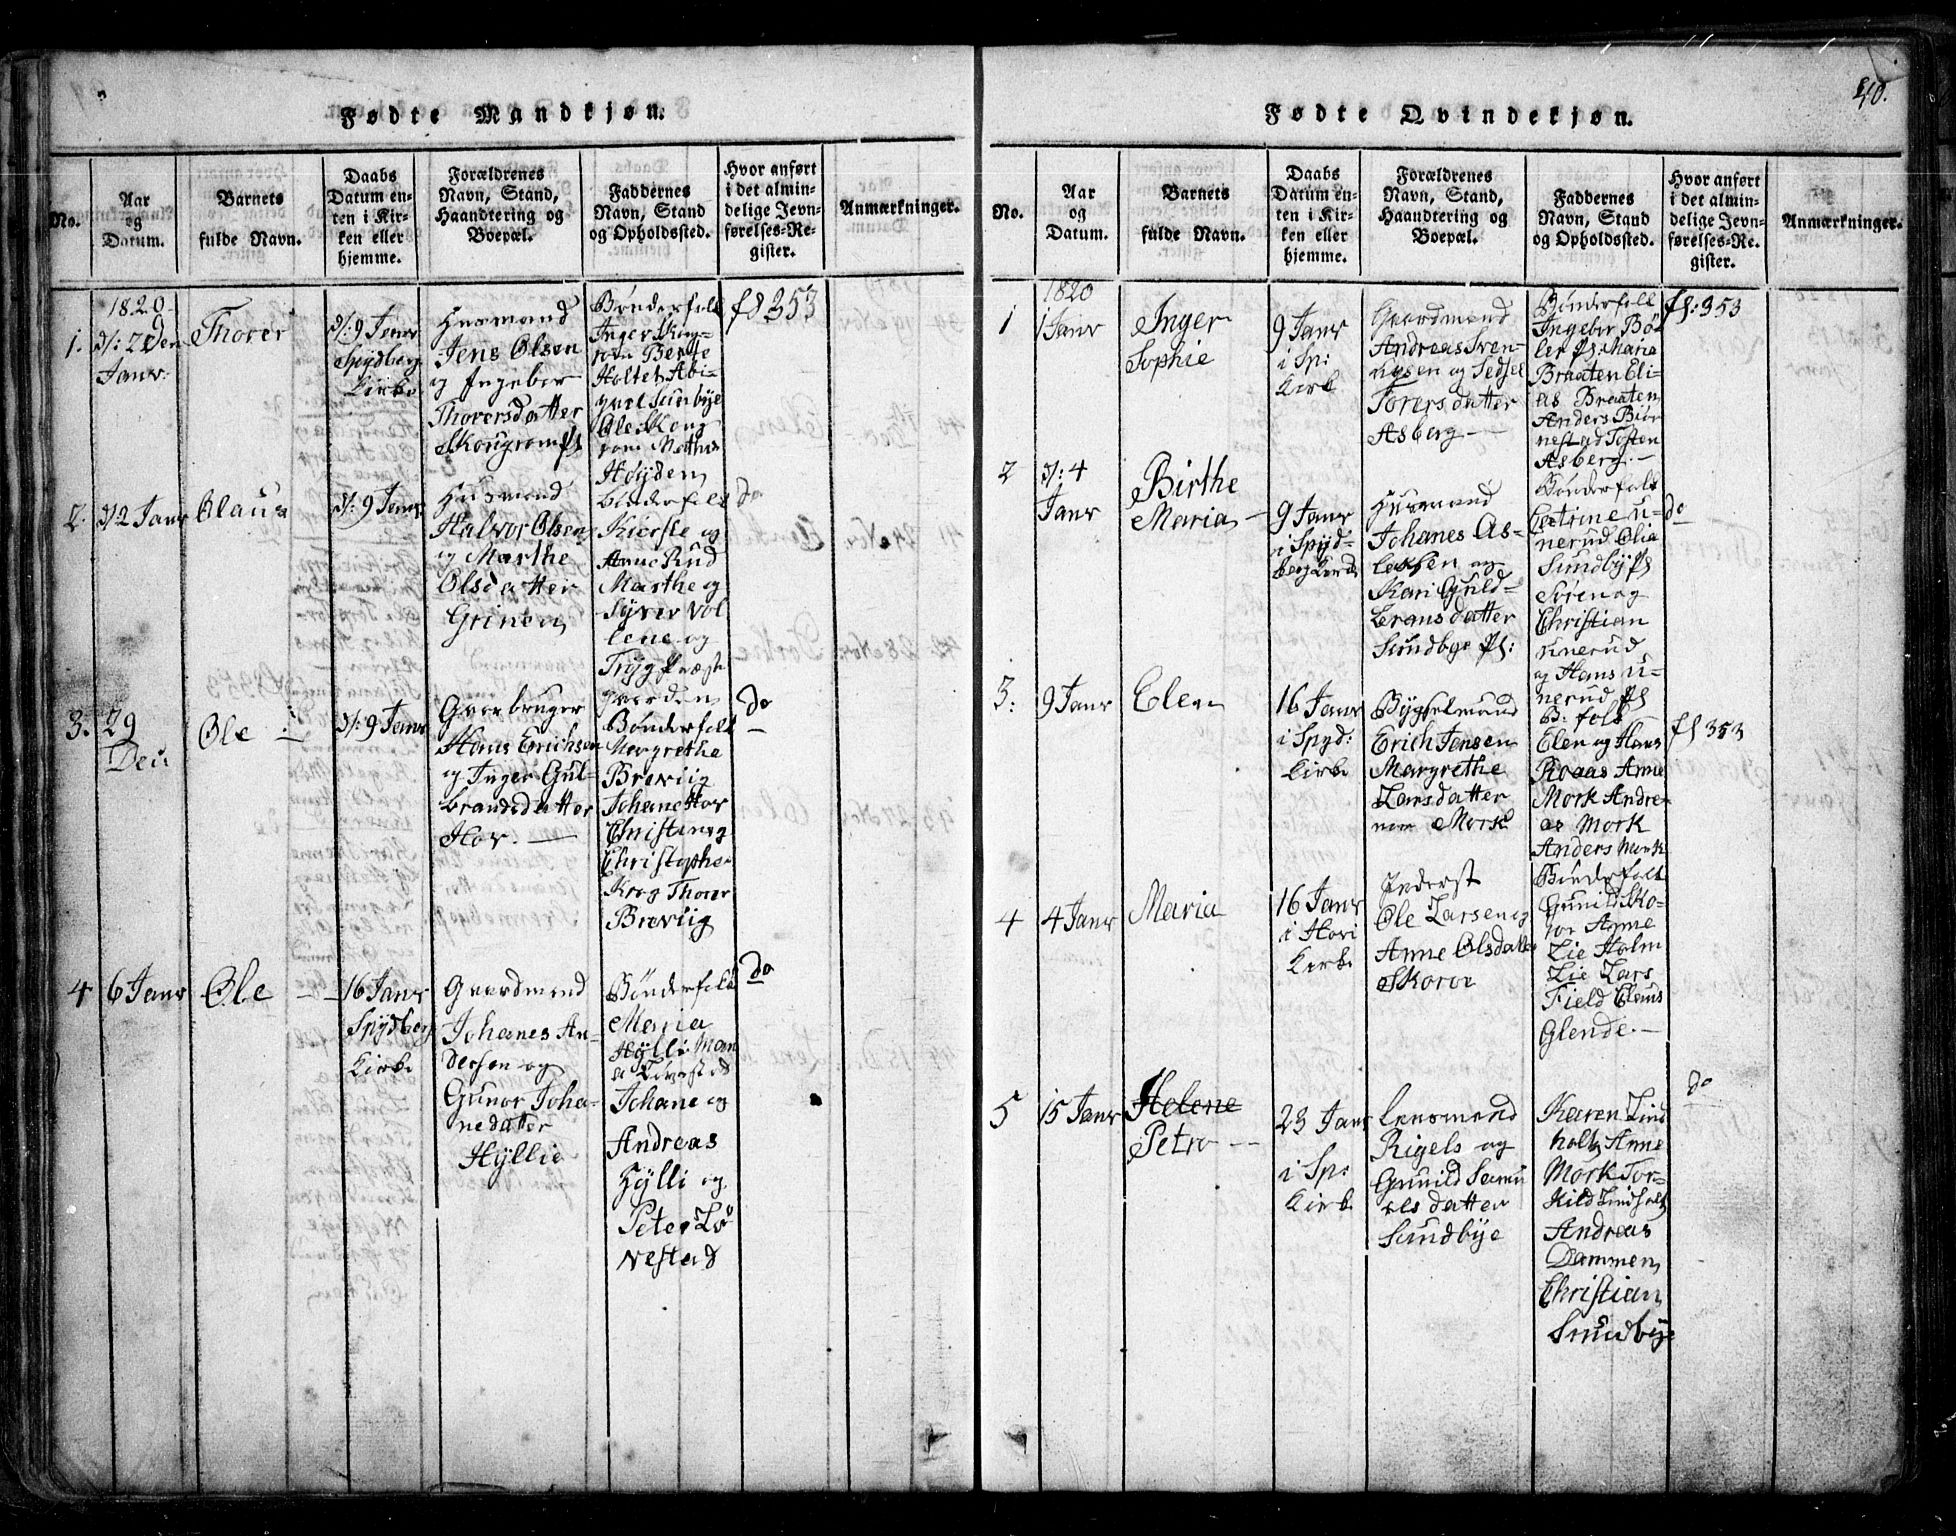 40.
Fødte Mandkjøn.
No.
Aar
og
Datum.
Barnets
fulde Navn.
Daabs
Datum en-
ten i Kir-
ken eller
hjemme.
Forældrenes
Navn, Stand,
Haandtering og
Boepæl.
Faddernes
Navn, Stand
og Opholdssted.
Hvor anført
i det almin-
delige Jevn-
førelses-Re-
gister.
Anmærkninger.
1820
1.
Janr:
Thorer
9 Janr
Spydberg
Kirke
Huusmand
Jens Olsen
og Ingebor
Thorersdatter
Skougrom Pl
Bønderfolk
Inger Skou-
rom Berthe
Holtet Abi-
gael Sunbye
Ole Skoug
rom Mathis
Høyden
fl 353
2.
2 Janr
Olaus
9 Janr
Husmand
Halvor Olsen
og Marthe
Olsdatter
Grinen
Bønderfolk
Kierstie og
Arne Rud
Marthe og
Syver Vol
lene og
Tryg Præste
gaarden
do
3.
29
Dec:
Ole
9 Janr
Gaardbruger
Hans Erichsen
og Inger Gul-
brandsdatter
Hov.
Bønderfolk
Margrethe
Breviig
Johane Hov
Christian og
Christopher
Krog Thorer
Breviig
do
4
6 Janr
Ole
16 Janr
Spydberg
Kirke
Gaardmand
Johanes An-
dersen og
Gunor Joha-
nedatter
Hyllie
Bønderfolk
Maria
Hylli
Johane og
Andreas
Hylli og
Peter Lø
vestad
do
Fødte Qvindekjøn.
No.
Aar
og
Datum.
Barnets
fulde Navn.
Daabs
Datum en-
ten i Kir-
ken eller
hjemme.
Forældrenes
Navn, Stand,
Haandtering og
Boepæl.
Faddernes
Navn, Stand
og Opholdssted.
Hvor anført
i det almin-
delige Jevn-
førelses-Re-
gister.
Anmærkninger.
1820
1
1 Janr
Inger
Sophie
9 Janr
i Sp:
Kirke
Gaardmand
Andreas Sven-
og Sedsel
Torersdatter
Asberg
Bønderfolk
Ingebor Bøl
ler Pl: Maria
Braaten Eli-
as Braaten
Anders Biør
nestad Tosten
Asberg.
fl: 353
2
4
Janr
Birthe
Maria
9 Janr
i Spyd-
berg Kirke
Husmand
Johanes As-
lessen og
Kari Guld-
bransdatter
Sundbye Pl:
Bønderfolk
Catrine U-
nerud Olia
Sundby Pl
Søren og
Christian
Unerud
og Hans U-
nerud Pl
do
3:
9 Janr
Elen
16 Janr
i Spyd:
Kirke
Bygselmand
Erich Jensen
Margrethe
Larsdatter
Mork
B: folk
Elen og Hans
Raaas Anne
Mork Andre-
as Mork
Anders Mork
fl 353
4
4 Janr
Maria
16 Janr
i Hovi
Kirke
Inderst
Ole Larsen og
Anne Olsdatter
Skoror
Bønderfolk
Gunild Sko-
ror Anne
Lie Holm
Lie Lars
Field Claus
Glende.
5
15 Janr
Helene
Petro
23 Janr
i Sp:
Kirke
Lensmand
Rigels og
Gunild Samu
elsdatter
Sundbye
Karen Lind
holt Anne
Mork Tor-
kild Lindholt
Andreas
Dammen
Christian
Sundbye
do